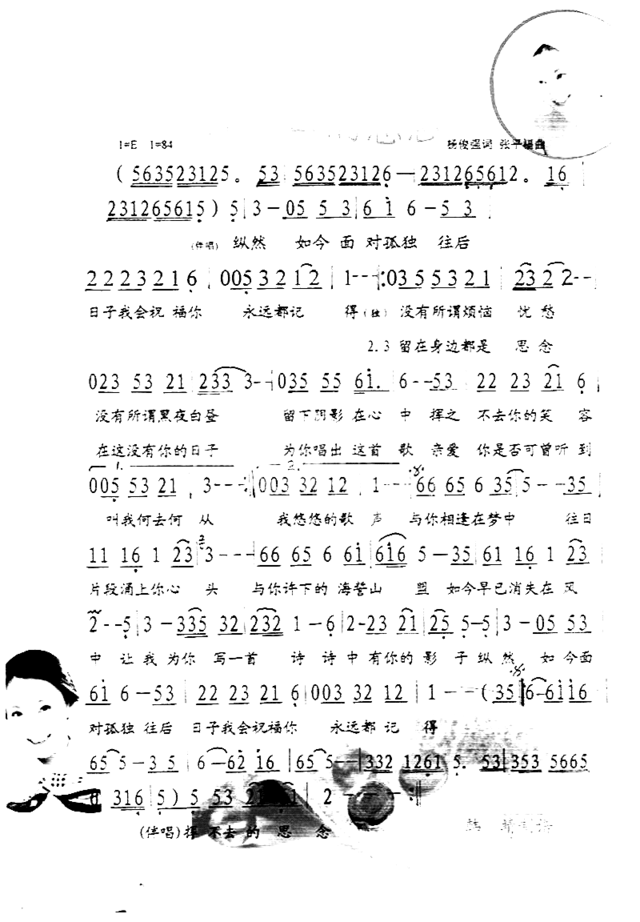 1=E 1=84
杨俊强词 张平福曲
(563523125. 53 563523126—231265612. 16
231265615) 5 3-05 5 3 6 1 6-5 3
(伴唱) 纵然 如今 面 对孤独 往后
2 2 2 3 2 1 6 005 3 2 1 2 1--- :03 5 5 3 2 1 23 2 2--
日子我会祝 福你 永远都记 得(独) 没有所谓烦恼 忧 愁
2.3 留在身边都是 思 念
023 53 21 233 3-- 035 55 61. 6--53 22 23 21 6
没有所谓黑夜白昼 留下阴影 在心 中 挥之 不去你的笑 容
在这没有你的日子 为你唱出 这首 歌 亲爱 你是否可曾听 到
1. 2.
005 53 21 3--- :003 32 12 1--- 66 65 6 35 5--35
叫我何去何 从 我悠悠的歌 声 与你相逢在梦中 往日
11 16 1 23 3--- 66 65 6 61 616 5-35 61 16 1 23
片段涌上你心 头 与你许下的 海誓山 盟 如今早已消失在 风
2--5 3-335 32 232 1-6 2-23 21 25 5-5 3-05 53
中 让 我 为你 写一首 诗 诗 中 有你的 影 子 纵 然 如 今面
61 6-53 22 23 21 6 003 32 12 1--(35 6-6116
对孤独 往后 日子我会祝福你 永远都 记 得
65 5-3 5 6-62 16 65 5- 332 1261 5. 53 353 5665
316 5) 5 53 2 2---
(伴唱) 挥 不去 的 思 念